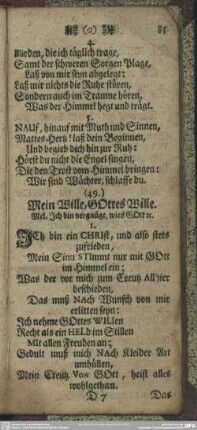 (o) 85
4.
Bürden, die ich täglich trage,
Samt der schweren Sorgen Plage,
Laß von mir seyn abgelegt:
Laß mir nichts die Ruhe stören,
Sondern auch im Traume hören,
Was der Himmel hegt und trägt.
5.
NAuf, hinauf mit Muth und Sinnen,
Mattes Hertz! laß dein Beginnen,
Und begieb dich hin zur Ruh:
Hörst du nicht die Engel singen,
Die den Trost vom Himmel bringen:
Wir sind Wächter, schlaffe du.
(49.)
Mein Wille, GOttes Wille.
Mel. Ich bin vergnügt, wies GOtt
1.
ICh bin ein CHRIst, und also stets
zufrieden,
Mein Sinn STImmt nur mit GOtt
im Himmel ein;
Was der vor mich zum Creutz Allhier
beschieden,
Das muß NACh Wunsch von mir
erlitten seyn:
Ich nehme GOttes WILlen
Recht als ein HELd im Stillen
Mit allen Freuden an;
Gedult muß mich NACh Kleider Art
umhüllen,
Mein Creutz VON GOtt, heist alles
wohlgethan.
D 7 Das